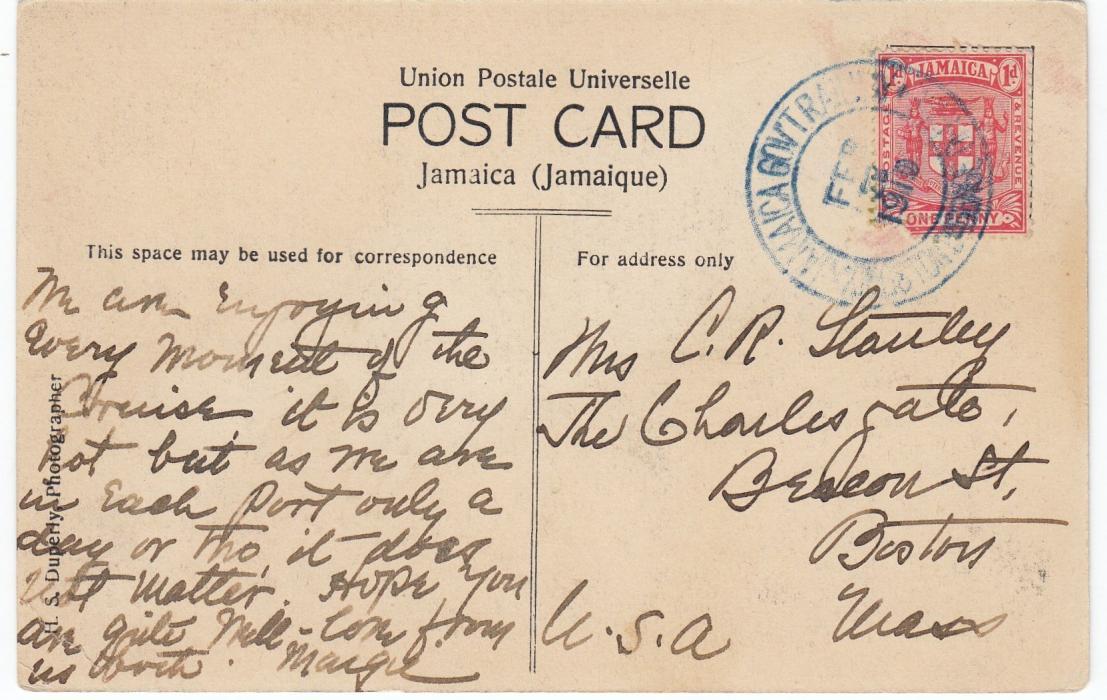 Union Postale Universelle
POST CARD
Jamaica (Jamaique)
JAMAICA
1d 1d
POSTAGE & REVENUE
ONE PENNY
JAMAICA GOV'T RAILWAY
FEB
1910
This space may be used for correspondence
For address only
We are Enjoying
Every Moment of the
Cruise it is very
hot but as we are
in Each Port only a
day or two, it does
not Matter. Hope you
are quite Well - love from
us both. Margie
Mrs C. R. Stanley
The Charlesgate,
Beacon St,
Boston
Mass
U.S.A
H. S. Duperly, Photographer